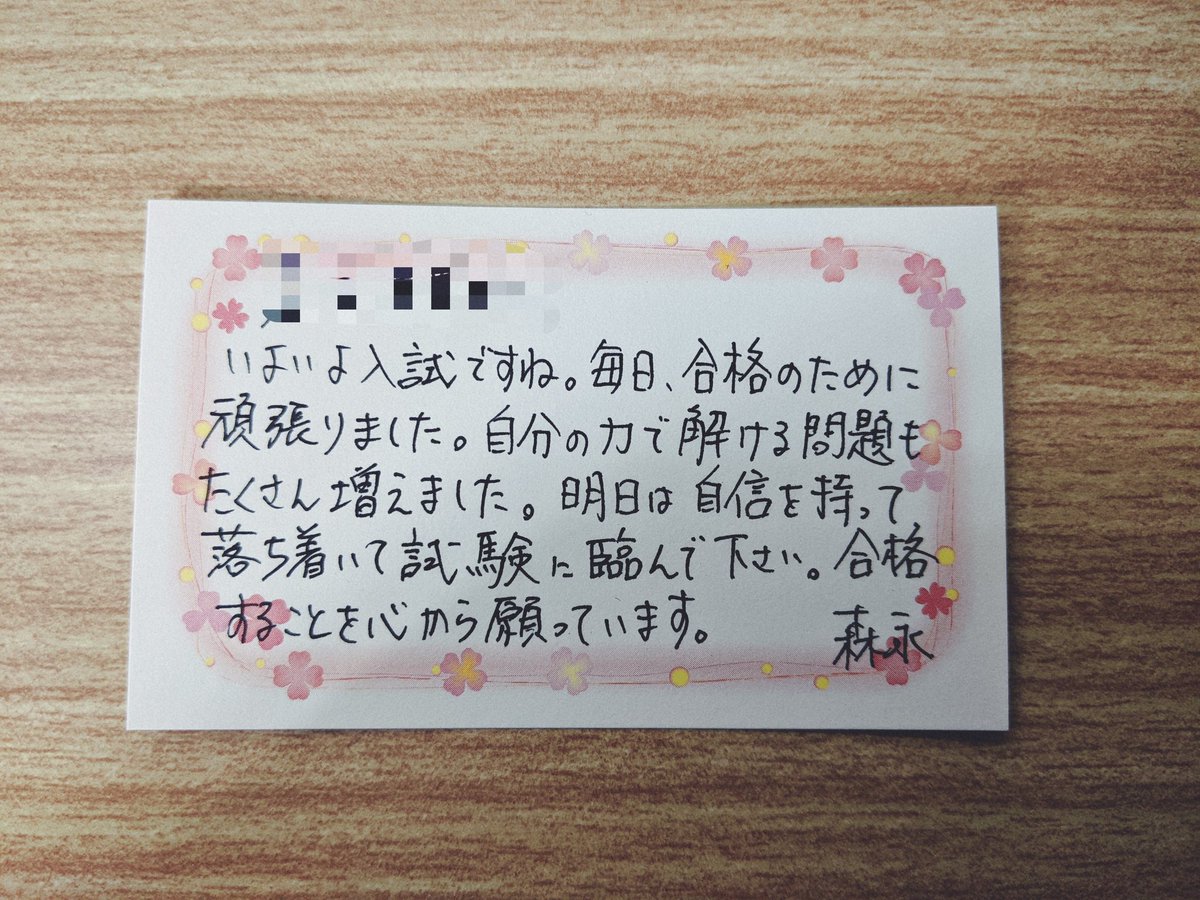 いよいよ入試ですね。毎日、合格のために
頑張りました。自分の力で解ける問題も
たくさん増えました。明日は自信を持って
落ち着いて試験に臨んで下さい。合格
することを心から願っています。
森永